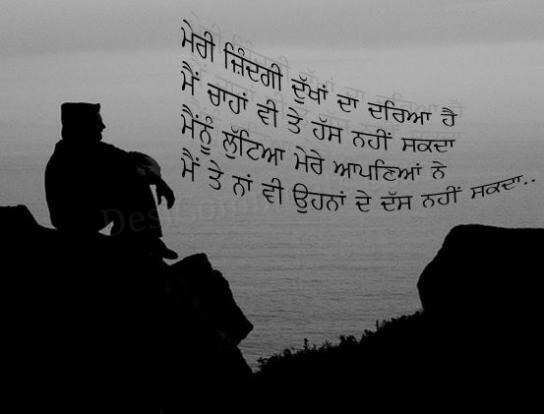 ਮੇਰੀ ਜ਼ਿੰਦਗੀ ਦੁੱਖਾਂ ਦਾ ਦਰਿਆ ਹੈ
ਮੈਂ ਚਾਹਾਂ ਵੀ ਤੇ ਹੱਸ ਨਹੀਂ ਸਕਦਾ
ਮੈਂਨੂੰ ਲੁੱਟਿਆ ਮੇਰੇ ਆਪਣਿਆਂ ਨੇ
ਮੈਂ ਤੇ ਨਾਂ ਵੀ ਉਹਨਾਂ ਦੇ ਦੱਸ ਨਹੀਂ ਸਕਦਾ..